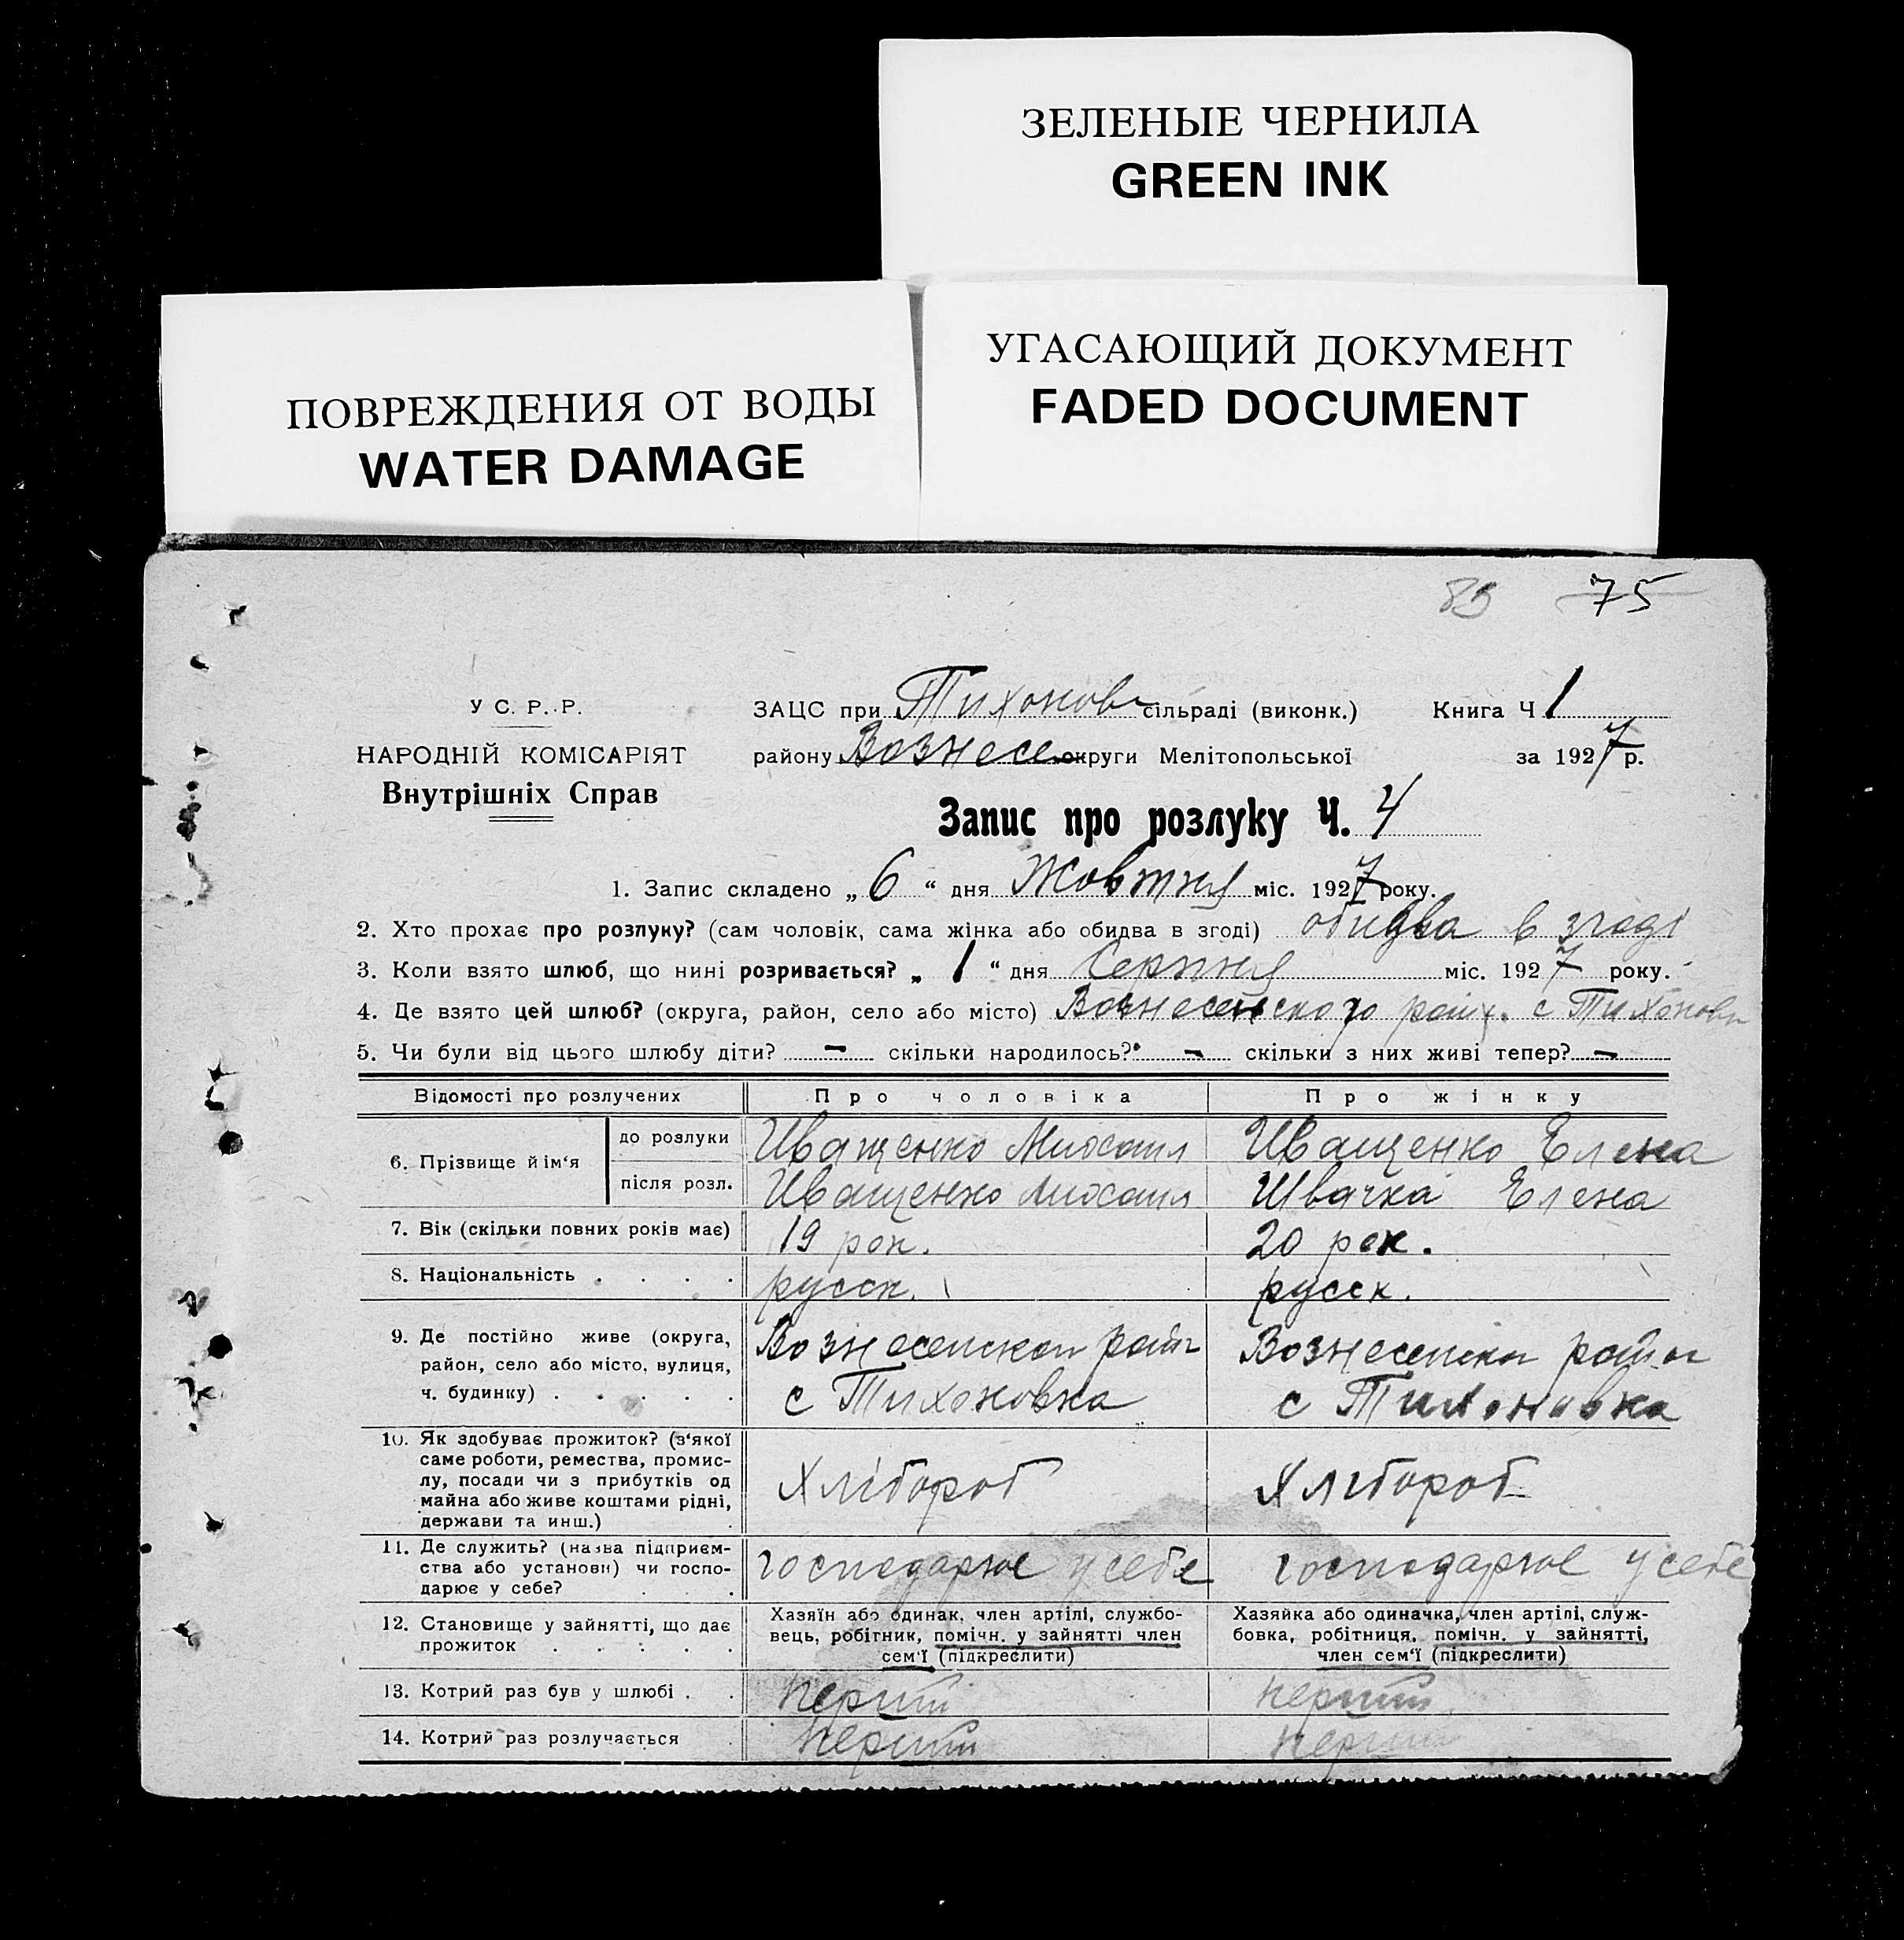 ЗЕЛЕНЫЕ ЧЕРНИЛА
GREEN INK
ПОВРЕЖДЕНИЯ ОТ ВОДЫ
WATER DAMAGE
УГАСАЮЩИЙ ДОКУМЕНТ
FADED DOCUMENT
83 75
У С. Р. Р.
НАРОДНІЙ КОМІСАРІЯТ
Внутрішніх Справ
ЗАЦС при Тихонов сільраді (виконк.) Книга Ч 1
району Вознесе округи Мелітопольської за 1927 р.
Запис про розлуку Ч. 4
1. Запис складено „ 6 “ дня Жовтня міс. 1927 року.
2. Хто прохає про розлуку? (сам чоловік, сама жінка або обидва в згоді) обидва в згоді
3. Коли взято шлюб, що нині розривається? „ 1 “ дня Серпня міс. 1927 року.
4. Де взято цей шлюб? (округа, район, село або місто) Вознесенского рай. с Тихоновк
5. Чи були від цього шлюбу діти? — скільки народилось? — скільки з них живі тепер? —
Відомості про розлучених Про чоловіка Про жінку
6. Прізвище й ім'я
до розлуки Иващенко Михаил Иващенко Елена
після розл. Иващенко Михаил Швачка Елена
7. Вік (скільки повних років має) 19 рок. 20 рок.
8. Національність . . . . русск. русск.
9. Де постійно живе (округа,
район, село або місто, вулиця,
ч. будинку) . . . . .
Вознесенском район
с Тихоновка
Вознесенском район
с Тихоновка
10. Як здобуває прожиток? (з'якої
саме роботи, ремества, промис-
лу, посади чи з прибутків од
майна або живе коштами рідні,
держави та инш.) .
Хлібороб Хлібороб
11. Де служить? (назва підприєм-
ства або установи) чи госпо-
дарює у себе? . .
господарює у себе господарює у себе
12. Становище у зайнятті, що дає
прожиток . . . . .
Хазяїн або одинак, член артілі, службо-
вець, робітник, помічн. у зайнятті член
сем'ї (підкреслити)
Хазяйка або одиначка, член артілі, служ-
бовка, робітниця, помічн. у зайнятті,
член сем'ї (підкреслити)
13. Котрий раз був у шлюбі . . перший перший
14. Котрий раз розлучається перший перший